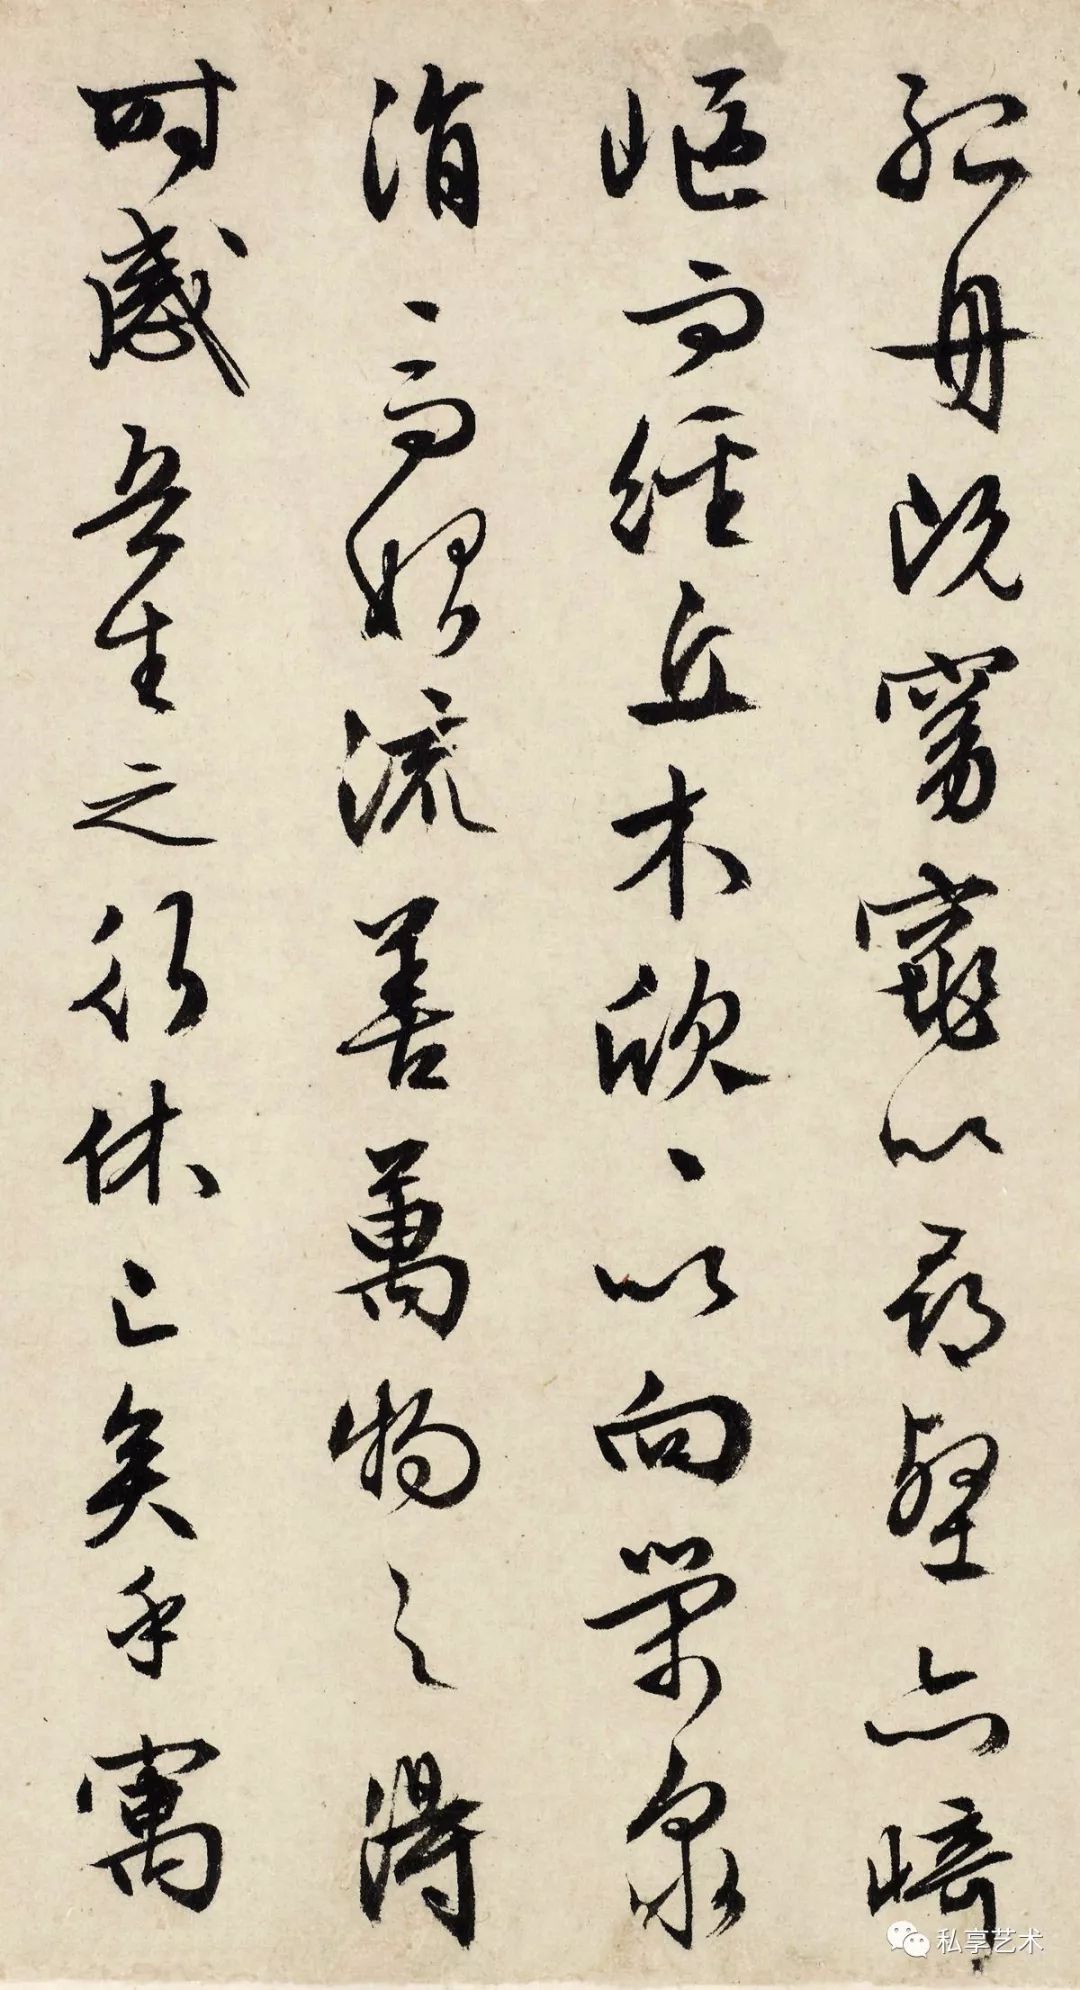 孤舟既窈窕以尋壑亦崎
嶇而經丘木欣〻以向榮泉
涓〻而始流善萬物之得
時感吾生之行休已矣乎寓
私享艺术